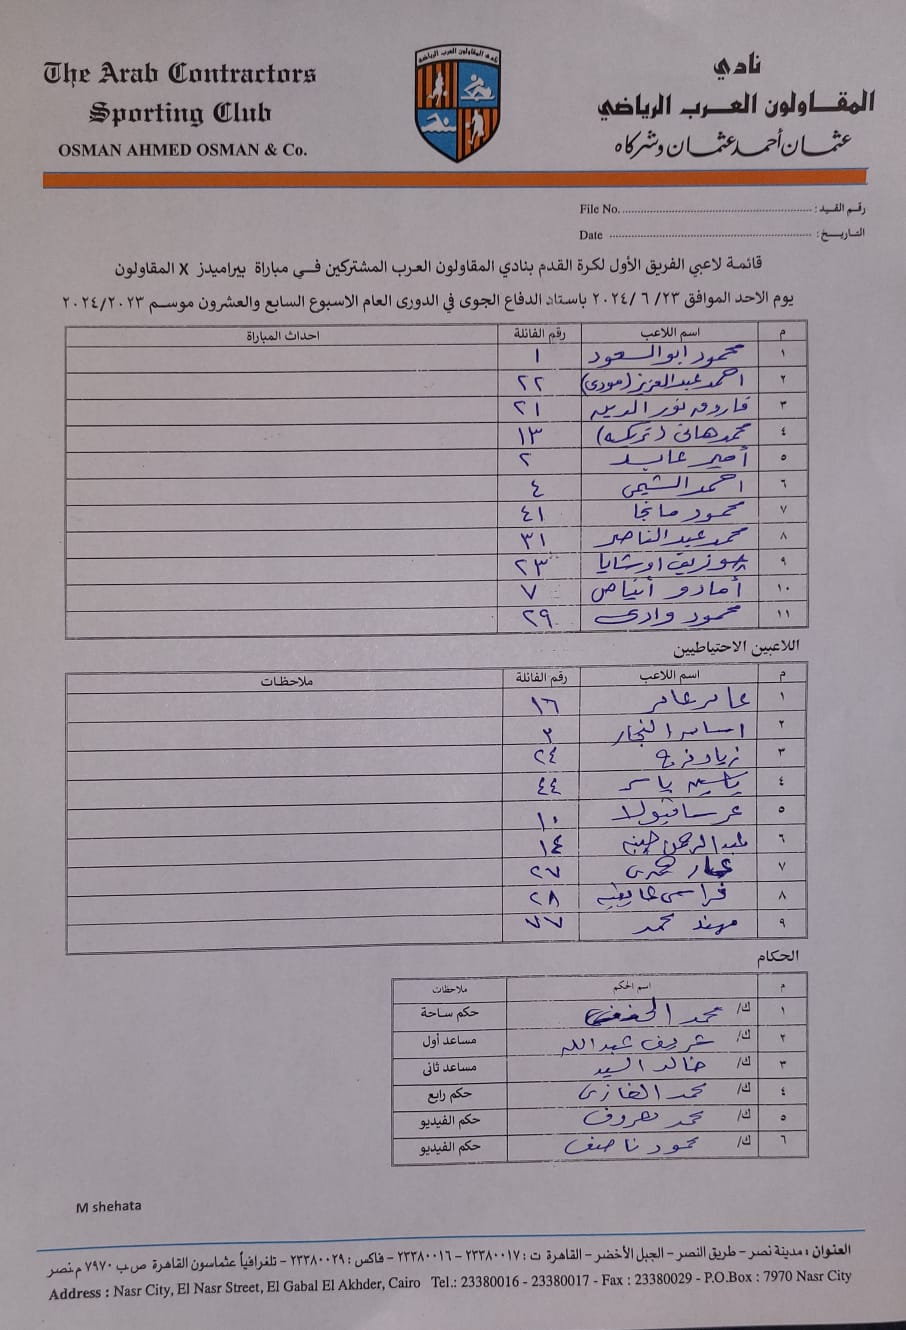 The Arab Contractors
Sporting Club
OSMAN AHMED OSMAN & Co.
نادي المقاولون العرب الرياضي
نادي
المقاولون العرب الرياضي
عثمان أحمد عثمان وشركاه
File No. رقم القيد :
Date التاريخ :
قائمة لاعبي الفريق الأول لكرة القدم بنادي المقاولون العرب المشتركين في مباراة بيراميدز X المقاولون
يوم الاحد الموافق ٢٣/ ٦ /٢٠٢٤ باستاد الدفاع الجوى في الدورى العام الاسبوع السابع والعشرون موسم ٢٠٢٤/٢٠٢٣
م اسم اللاعب رقم الفانلة احداث المباراة
١ محمود ابوالسعود ١
٢ احمد عبدالعزيز (مودى) ٢٢
٣ فاروق نور الدين ٢١
٤ محمد هانى (تريكه) ١٣
٥ أمير عابد ٢
٦ احمد الشيمى ٤
٧ محمود مانجا ٤١
٨ محمد عبدالناصر ٣١
٩ جوزيف اوشايا ٢٣
١٠ أمادو أنياص ٧
١١ محمود وادى ٢٩
اللاعبين الاحتياطيين
م اسم اللاعب رقم الفانلة ملاحظات
١ عامر عامر ١٦
٢ اسامر النجار ٣
٣ زياد فرج ٢٤
٤ ياسين ياسر ٤٤
٥ عمر سافيولا ١٠
٦ عبدالرحمن ١٤
٧ عمار حمدى ٢٧
٨ ٢٨
٩ مهند محمد ٧٧
الحكام
م اسم الحكم ملاحظات
١ ك/ محمد الحنفى حكم ساحة
٢ ك/ شريف عبدالله مساعد أول
٣ ك/ خالد السيد مساعد ثانى
٤ ك/ محمد الغازى حكم رابع
٥ ك/ محمد معروف حكم الفيديو
٦ ك/ محمود ناصف حكم الفيديو
M shehata
العنوان : مدينة نصر – طريق النصر – الجبل الأخضر – القاهرة ت : ٢٣٣٨٠٠١٧ – ٢٣٣٨٠٠١٦ – فاكس : ٢٣٣٨٠٠٢٩ – تلغرافياً عثماسون القاهرة ص ب ٧٩٧٠ م نصر
Address : Nasr City, El Nasr Street, El Gabal El Akhder, Cairo Tel.: 23380016 - 23380017 - Fax : 23380029 - P.O.Box : 7970 Nasr City